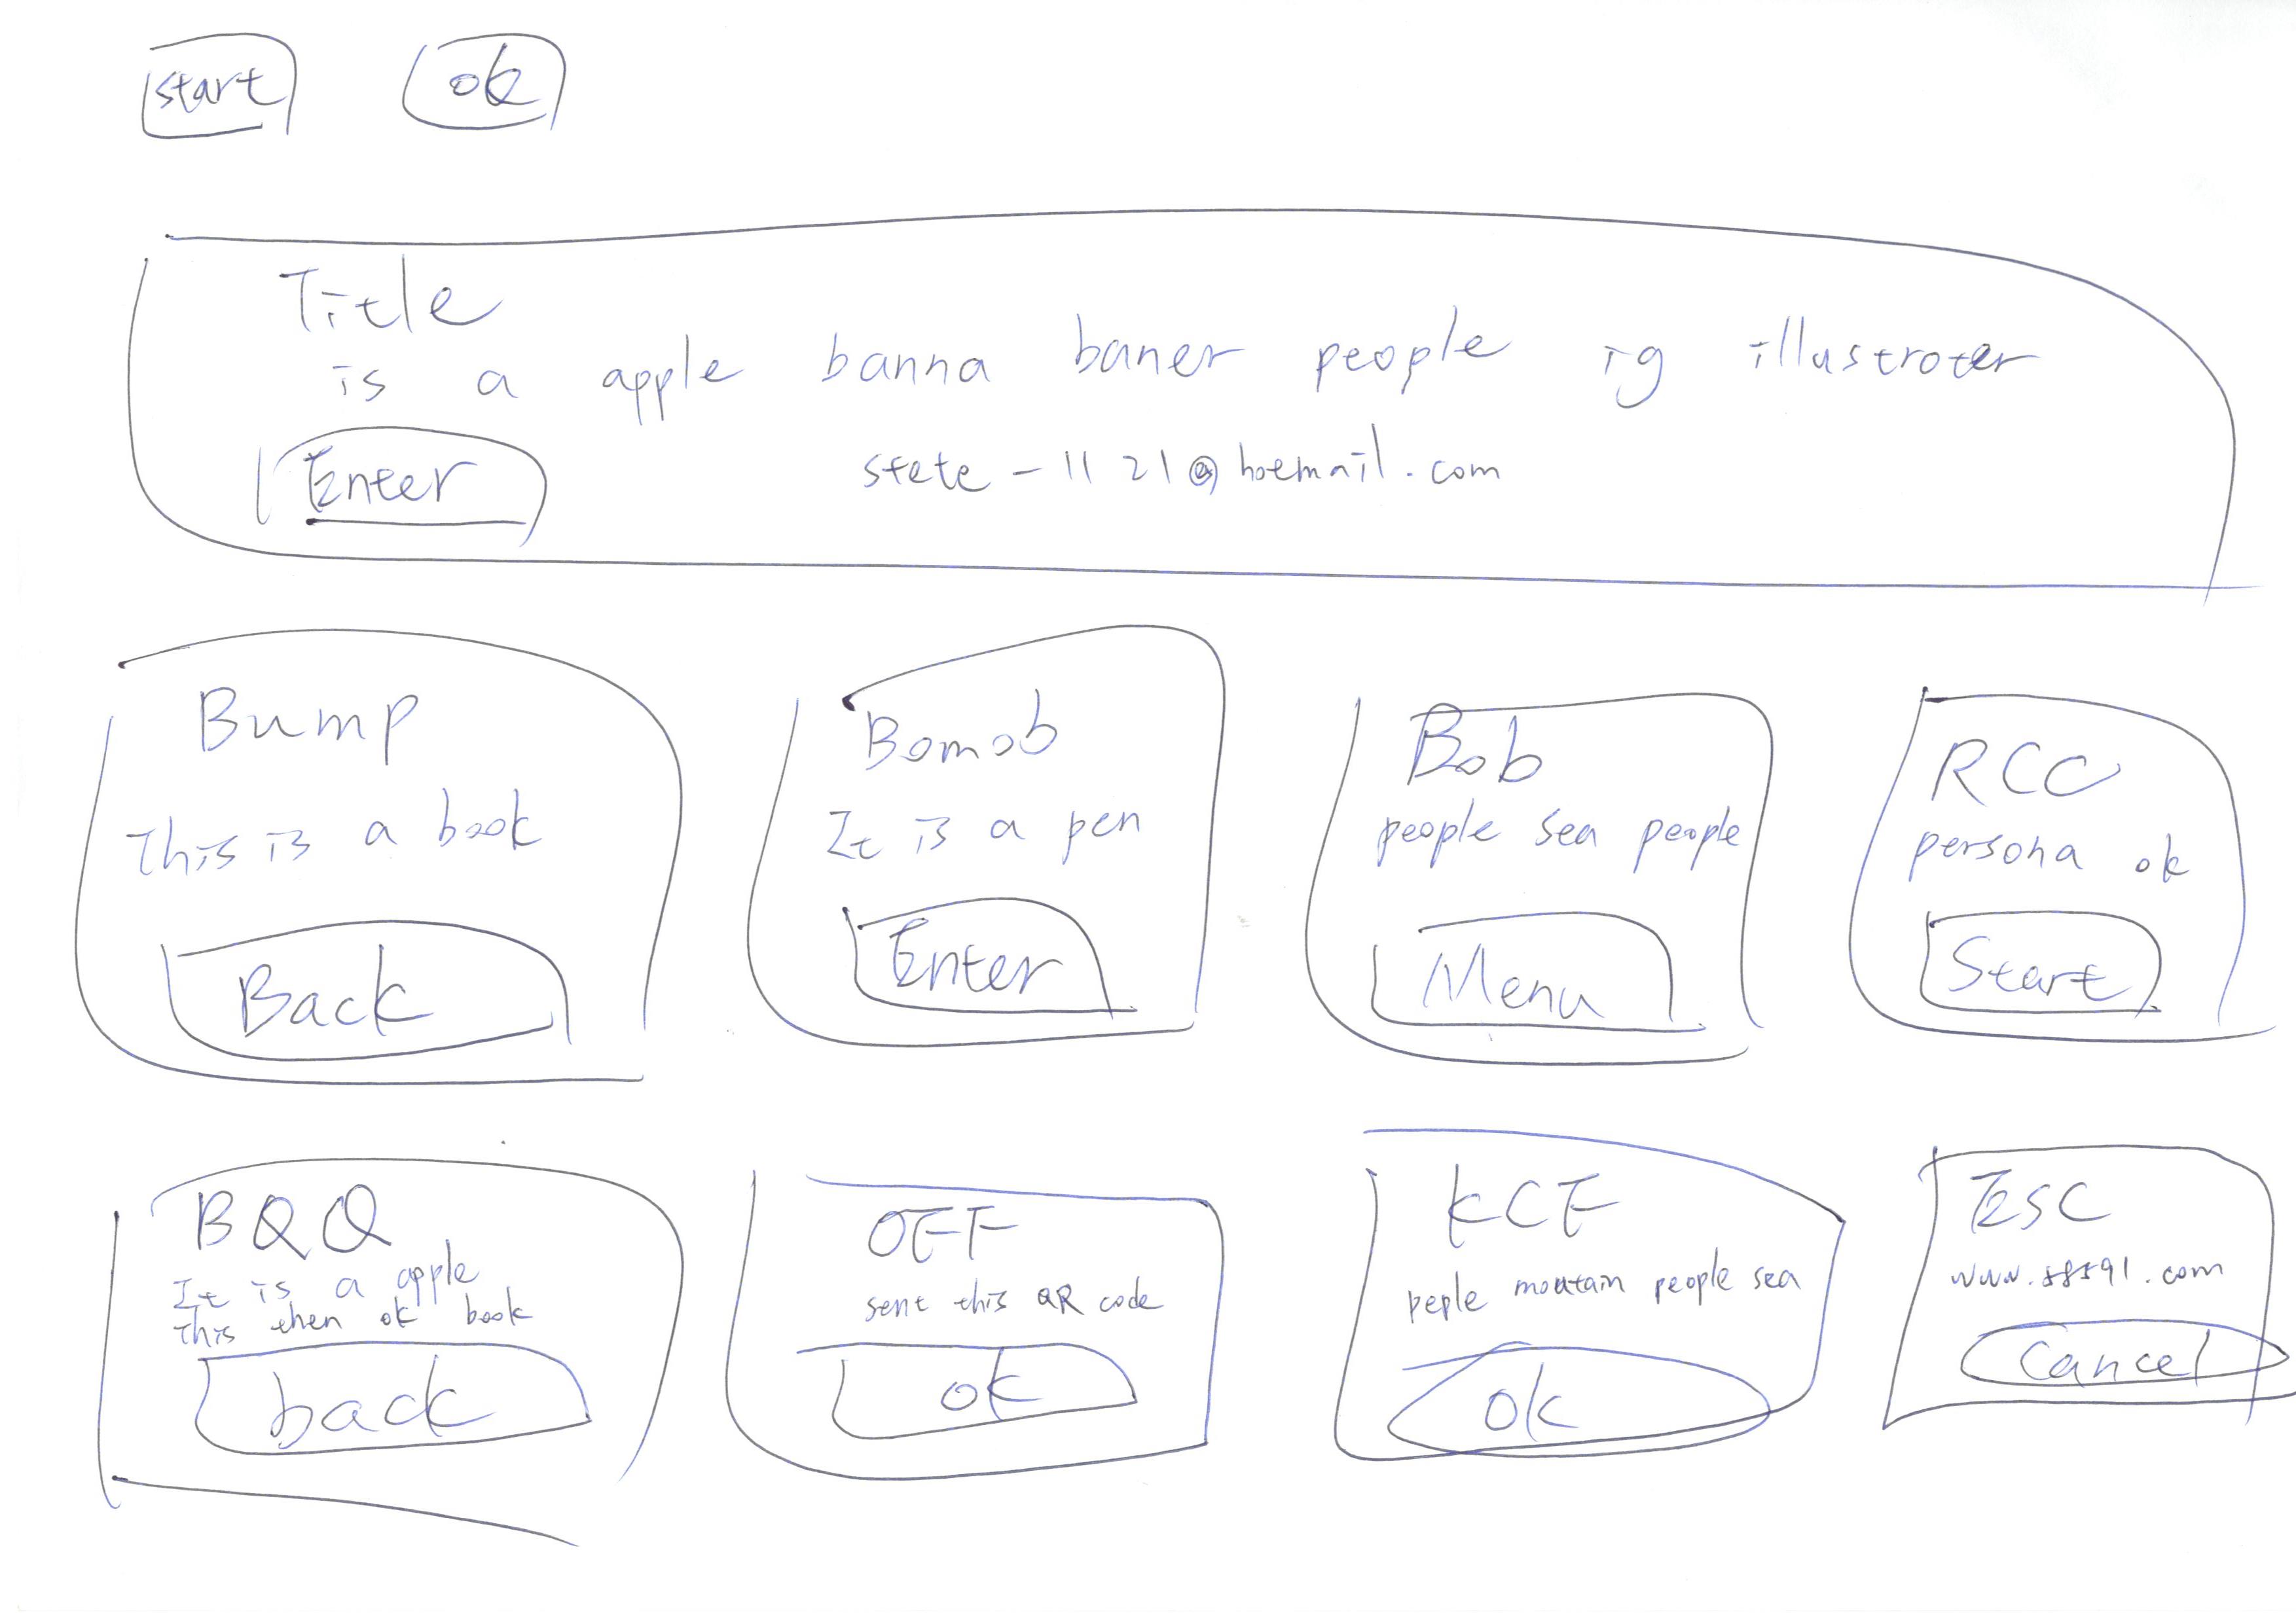 start ok
Title
is a apple banna baner people ig illustroter
Enter stete-1121@hotmail.com
Bump
This is a book
Back
Bomob
It is a pen
Enter
Bob
people sea people
Menu
RCC
persona ok
Start
BQQ
It is a apple
This then ok book
back
OFF
sent this QR code
ok
KCF
peple moutain people sea
ok
ESC
www.58591.com
Cancel